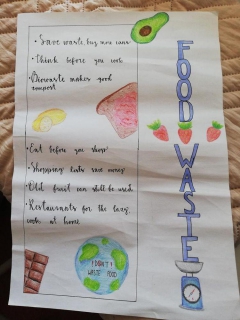 • Save waste, buy more cans
• Think before you cook
• Biowaste makes good
compost
• Eat before you shop!
• Shopping lists save money
• Old fruit can still be used
• Restaurants for the lazy,
cook at home
I DIDN'T
WASTE FOOD
FOOD
WASTE